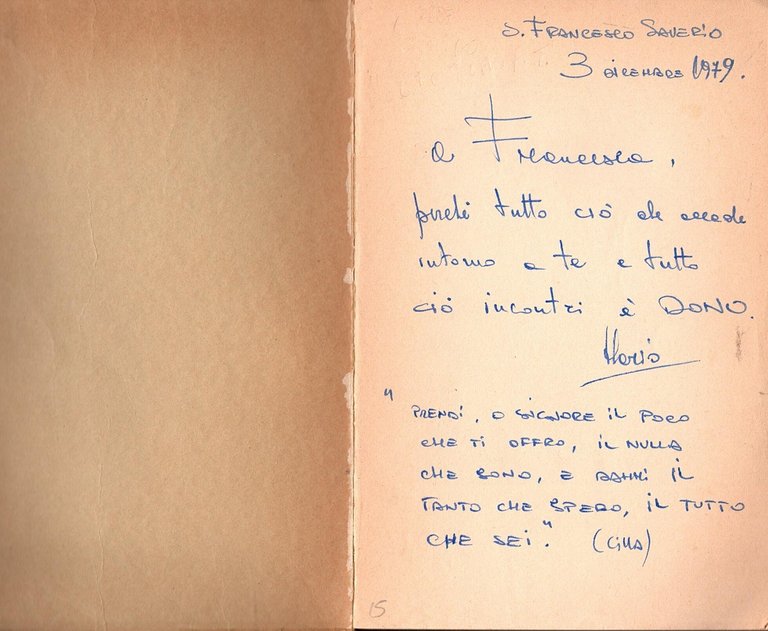 S. FRANCESCO SAVERIO
3 DICEMBRE 1979.
a Francesca,
perché tutto ciò che accade
intorno a te e tutto
ciò incontri è DONO.
Mario
"PRENDI, O SIGNORE IL POCO
CHE TI OFFRO, IL NULLA
CHE SONO, E DAMMI IL
TANTO CHE SPERO, IL TUTTO
CHE SEI." (Cilla)
15